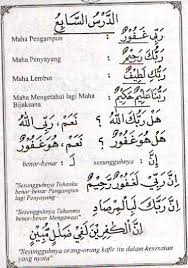 الدَّرْسُ السَّابِعُ
Maha Pengampun : رَبِّيْ غَفُوْرٌ
Maha Penyayang : رَبُّكَ رَحِيْمٌ
Maha Lembut : رَبُّكَ لَطِيْفٌ
Maha Mengetahui lagi Maha Bijaksana : عَلِيْمٌ حَكِيْمٌ
هَلْ رَبُّكَ اللّٰهُ ؟ نَعَمْ، رَبِّيَ اللّٰهُ
هَلْ هُوَ غَفُوْرٌ ؟ نَعَمْ، هُوَ غَفُوْرٌ
benar-benar : لَ sesungguhnya : إِنَّ
إِنَّ رَبِّيْ لَغَفُوْرٌ رَحِيْمٌ
"Sesungguhnya Tuhanku benar-benar Pengampun lagi Penyayang
إِنَّ رَبَّكَ لَبِالْمِرْصَادِ
"Sesungguhnya Tuhanmu benar-benar Mengawasi"
إِنَّ الْكٰفِرِيْنَ لَفِيْ ضَلٰلٍ مُبِيْنٍ
"Sesungguhnya orang-orang kafir itu dalam kesesatan yang nyata"